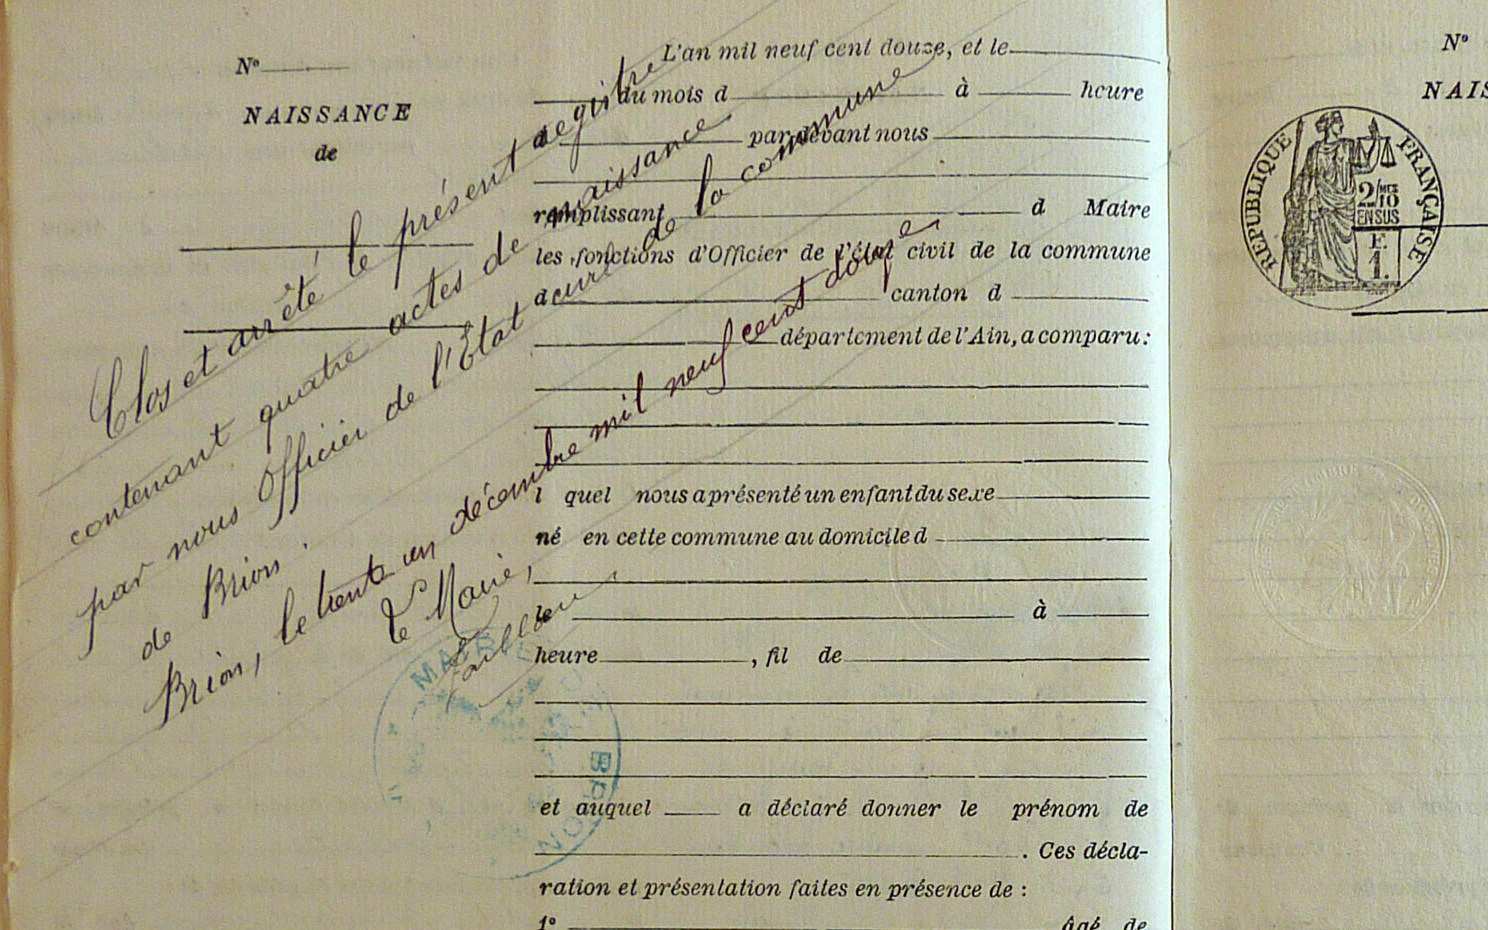 N°
NAISSANCE
de
L'an mil neuf cent douze, et le
du mois d à heure
d par devant nous
remplissant d Maire
les fonctions d'Officier de l'état civil de la commune
d canton d
département de l'Ain, a comparu:
l quel nous a présenté un enfant du sexe
né en cette commune au domicile d
le à
heure , fil de
et auquel a déclaré donner le prénom de
. Ces décla-
ration et présentation faites en présence de :
1° âgé de
Clos et arrêté le présent registre
contenant quatre actes de naissance
par nous Officier de l'État civil de la commune
de Brion.
Brion, le trente un décembre mil neuf cent douze
Le Maire,
MAIRIE DE BRION
N°
NAIS
RÉPUBLIQUE FRANÇAISE
2/MES
10
EN SUS
E.
1.